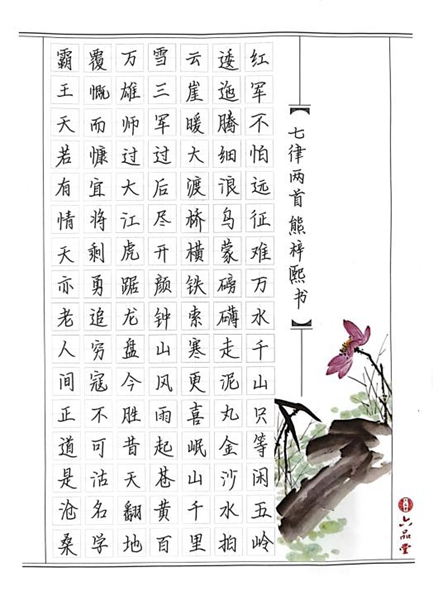 【七律两首 熊梓熙书】
红军不怕远征难万水千山只等闲五岭
逶迤腾细浪乌蒙磅礴走泥丸金沙水拍
云崖暖大渡桥横铁索寒更喜岷山千里
雪三军过后尽开颜钟山风雨起苍黄百
万雄师过大江虎踞龙盘今胜昔天翻地
覆慨而慷宜将剩勇追穷寇不可沽名学
霸王天若有情天亦老人间正道是沧桑
六品堂